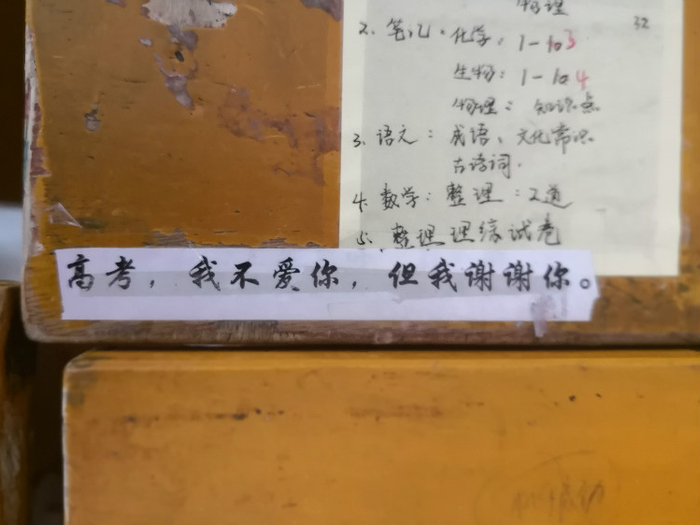 物理
32
2. 笔记：化学：1-103
生物：1-104
物理：知识点
3. 语文：成语、文化常识
古诗词.
4. 数学：整理：2道
5. 整理理综试卷
高考，我不爱你，但我谢谢你。